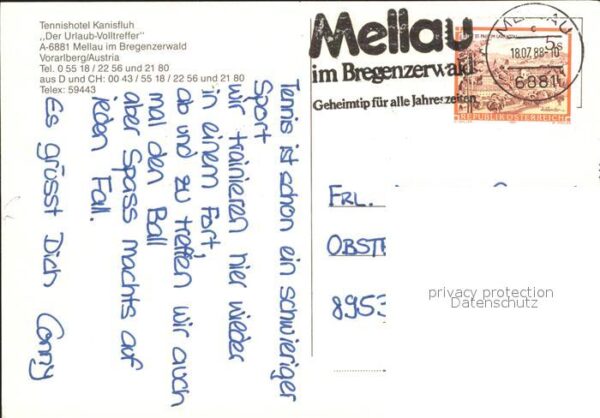 Tennishotel Kanisfluh
„Der Urlaub-Volltreffer"
A-6881 Mellau im Bregenzerwald
Vorarlberg/Austria
Tel. 0 55 18 / 22 56 und 21 80
aus D und CH: 00 43 / 55 18 / 22 56 und 21 80
Telex: 59443
Tennis ist schon ein schwieriger
Sport
wir trainieren hier wieder
in einem Fort,
ab und zu treffen wir auch
mal den Ball
aber Spass machts auf
jeden Fall.
Es grüsst Dich Conny
Mellau
im Bregenzerwald
Geheimtip für alle Jahreszeiten
MELLAU
18.07.88-16
6881
5 S
REPUBLIK ÖSTERREICH
FRL.
OBST
8953
privacy protection
Datenschutz